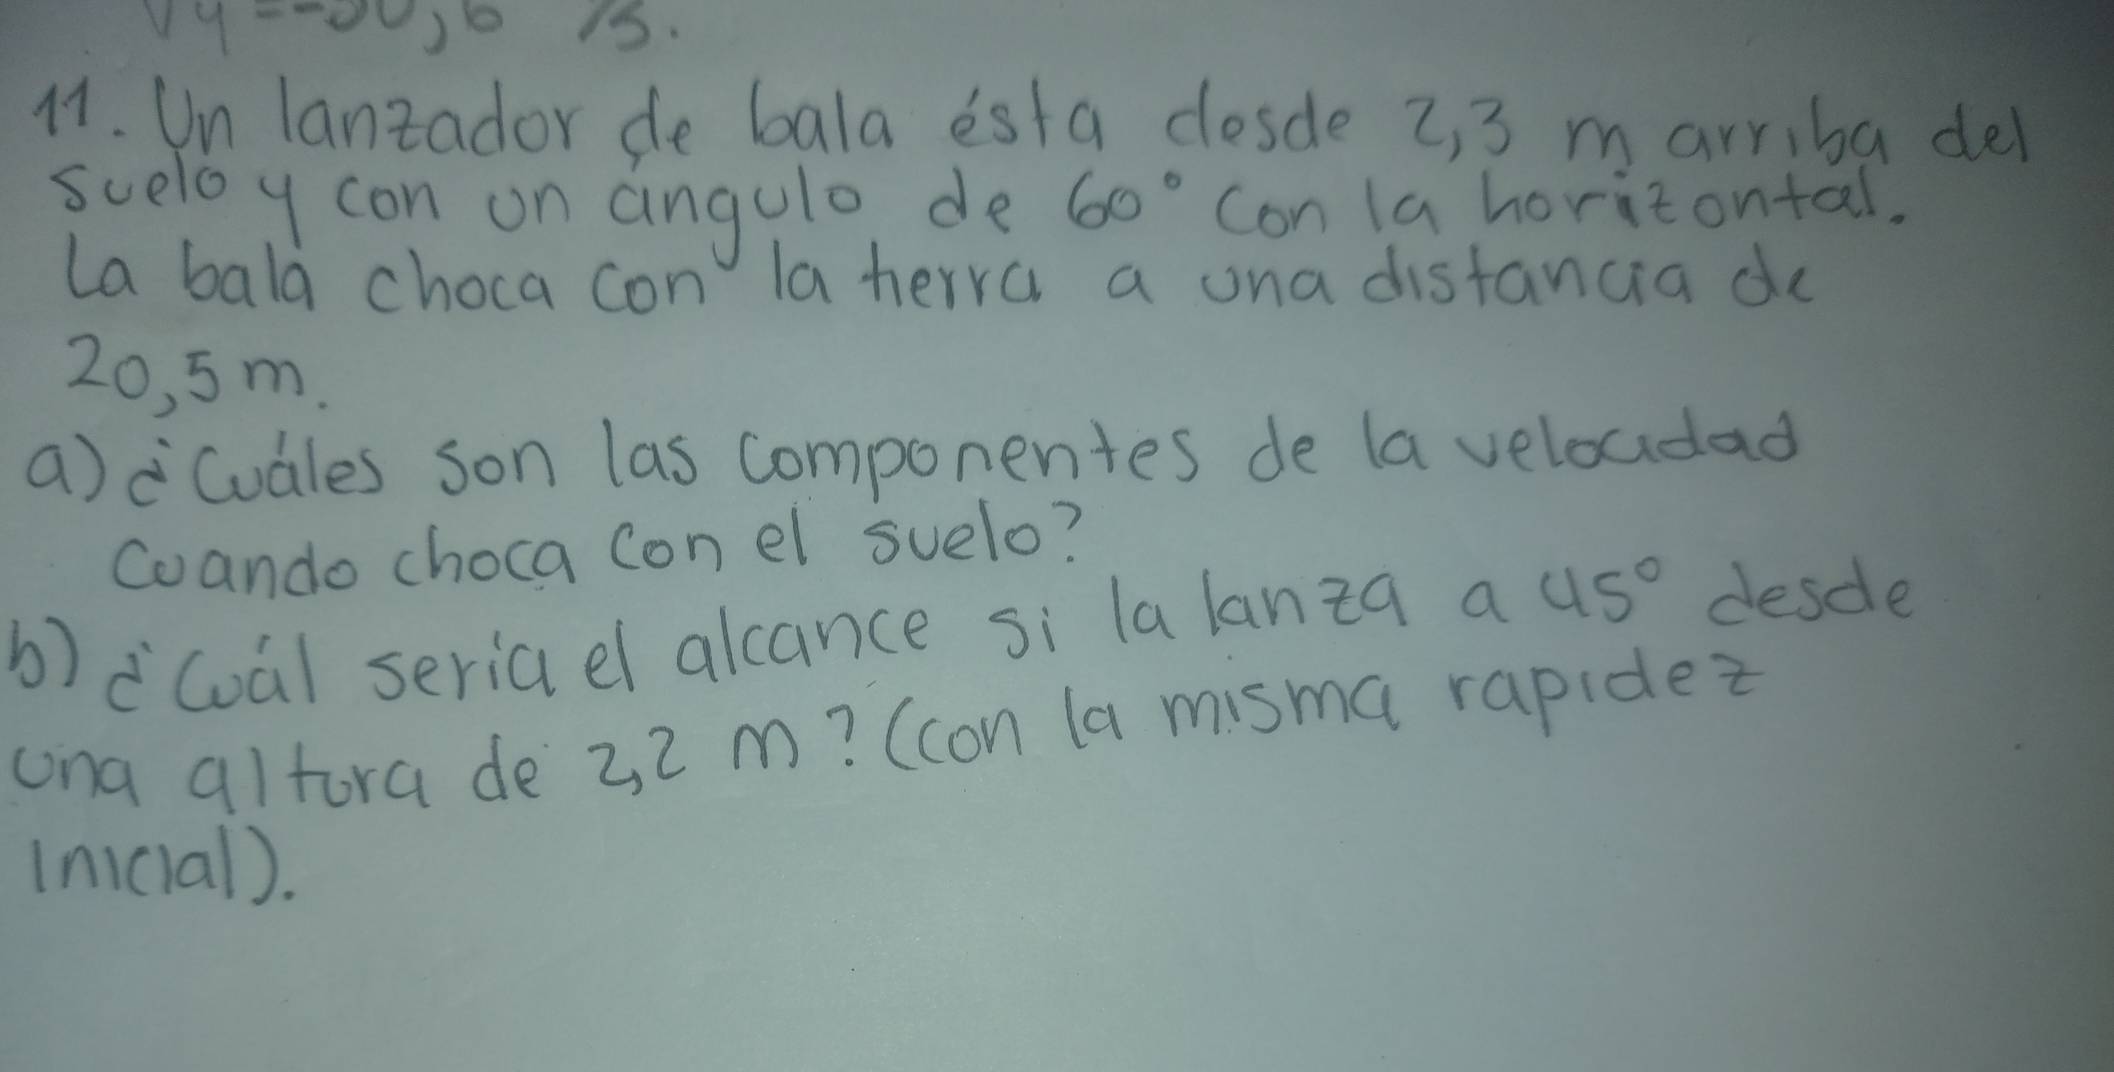 11. Un lanzador de bala ésta desde 2,3 m arriba del
suelo y con un ángulo de 60° con la horizontal.
La bala choca con la tierra a una distancia de
20,5 m.
a) ¿Cuáles son las componentes de la velocidad
cuando choca con el suelo?
b) ¿Cuál seria el alcance si la lanza a 45° desde
una altura de 2,2 m? (con la misma rapidez
inicial).